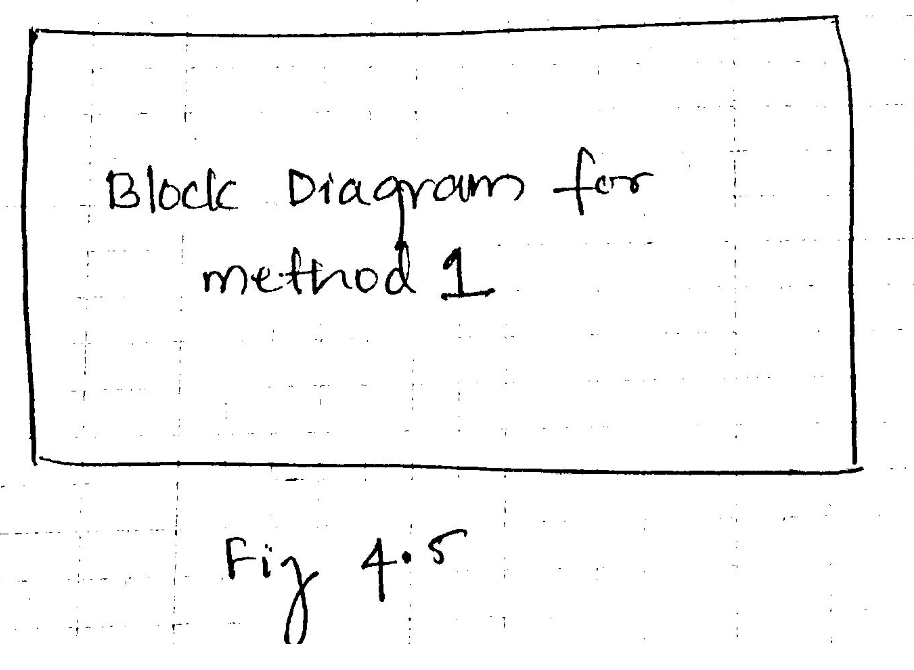 Block Diagram for
method 1
Fig 4.5